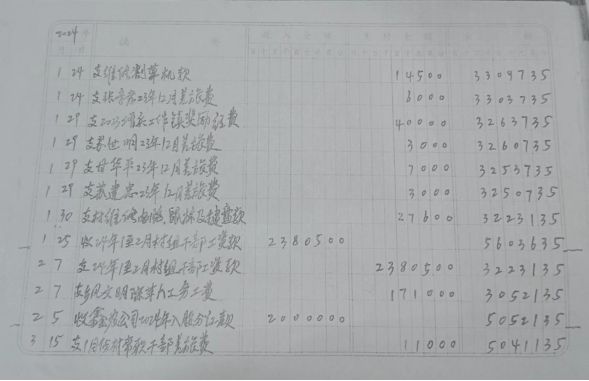 2024 年
月 日 摘 要 收入金额 支付金额 余 额
1 24 支维修割草机款 14500 3309735
1 24 支 23年12月差旅费 6000 3303735
1 29 支2023 工作镇奖励经费 40000 3263735
1 29 支 明23年12月差旅费 3000 3260735
1 29 支甘华平23年12月差旅费 7000 3253735
1 29 支苏建忠23年12月差旅费 3000 3250735
1 30 支村维修电脑 及键盘款 27600 3223135
1 25 收24年1至2月村组干部工资款 2380500 5603635
2 7 支24年1至2月村组干部工资款 2380500 3223135
2 7 支乡风文明 人工务工费 171000 3052135
2 5 收鑫 公司2024年入股分红款 2000000 5052135
3 15 支1月份村常职干部差旅费 11000 5041135